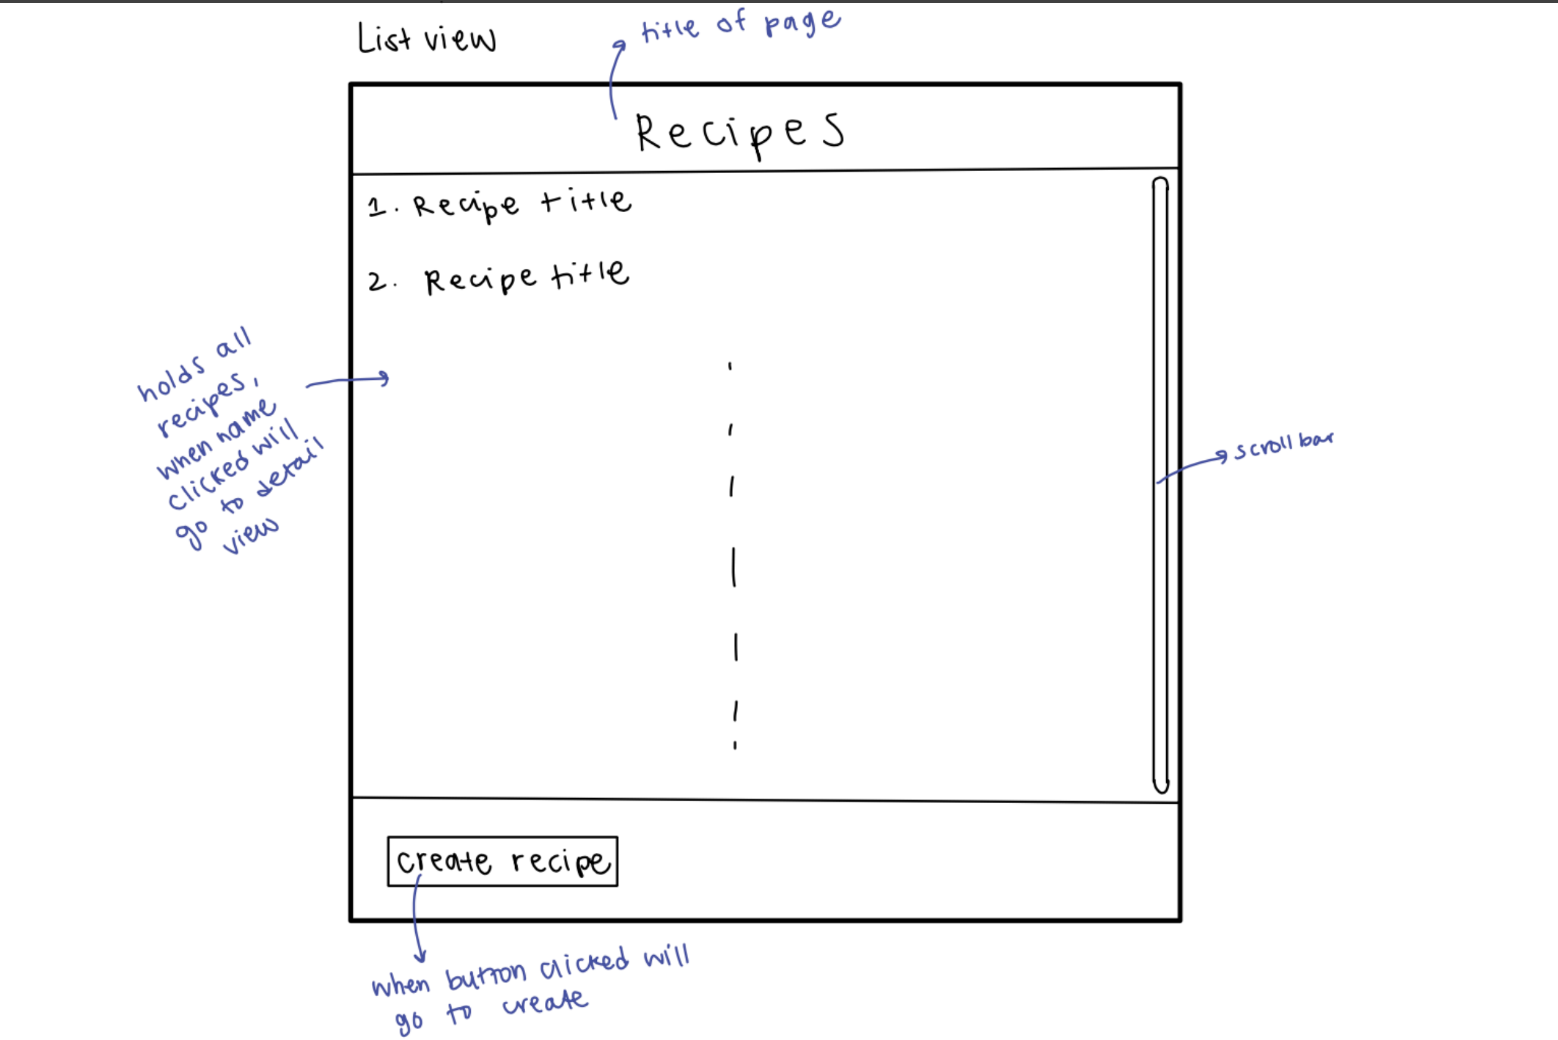 List view
title of page
Recipes
1. Recipe title
2. Recipe title
holds all
recipes,
when name
clicked will
go to detail
view
scroll bar
create recipe
when button clicked will
go to create